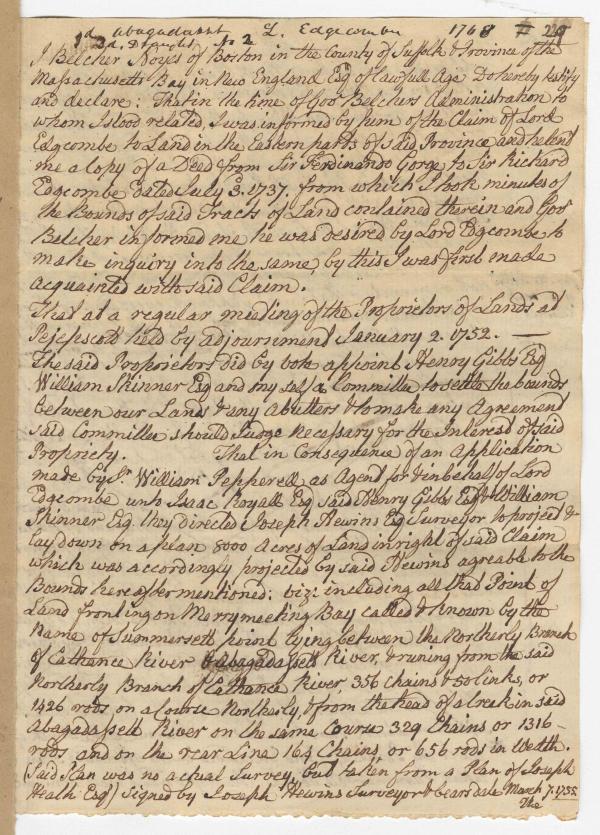 1d abagadasset L. Edgcombe 1768 # 29
2d. Draught No 2
I Belcher Noyes of Boston in the County of Suffolk & Province of the
Massachusetts Bay in New England Esqr of lawfull Age Do hereby testify
and declare: That in the time of Govr Belchers Administration to
whom I stood related, I was informed by him of the Claim of Lord
Edgcombe to Land in the Eastern parts of said Province and he lent
me a copy of a Deed from Sir Ferdinando Gorge to Sir Richard
Edgcombe Dated July 3. 1737. from which I took minutes of
the Bounds of said Tracts of Land contained therein and Govr
Belcher informed me he was desired by Lord Edgcombe to
make inquiry into the same, by this I was first made
acquainted with said Claim.
That at a regular meeting of the Proprietors of Lands at
Pejepscott held by adjournment January 2. 1752. —
The said Proprietors did by vote appoint Henry Gibbs Esqr
William Skinner Esq and my self a Committee to settle the bounds
between our Lands & any abutters & to make any Agreement
said Committee should Judge necessary for the Interest of said
Propriety. That in Consequence of an Application
made by Sr. William Pepperell as Agent for & in behalf of Lord
Edgcombe unto Isaac Royall Esq said Henry Gibbs Esqr & William
Skinner Esq. they directed Joseph Hewins Esq Surveyor to project &
lay down on a plan 8000 Acres of Land in right of said Claim
which was accordingly projected by said Hewins agreable to the
Bounds here after mentioned: viz: including all that Point of
Land fronting on Merrymeeting Bay called & known by the
Name of Summersett point lying between the Northerly Branch
of Cathance River & abagadassett River, & runing from the said
Northerly Branch of Cathance River, 356 chains & 50 links, or
1426 rods on a course Northerly, & from the head of a Creek in said
Abagadassett River on the same Course 329 Chains or 1316 -
rods and on the rear Line 164 Chains, or 656 rods in Wedth.
(Said Plan was no actual Survey, but taken from a Plan of Joseph
Heath Esqr) Signed by Joseph Hewins Surveyor & bears date March 7. 1755.
The